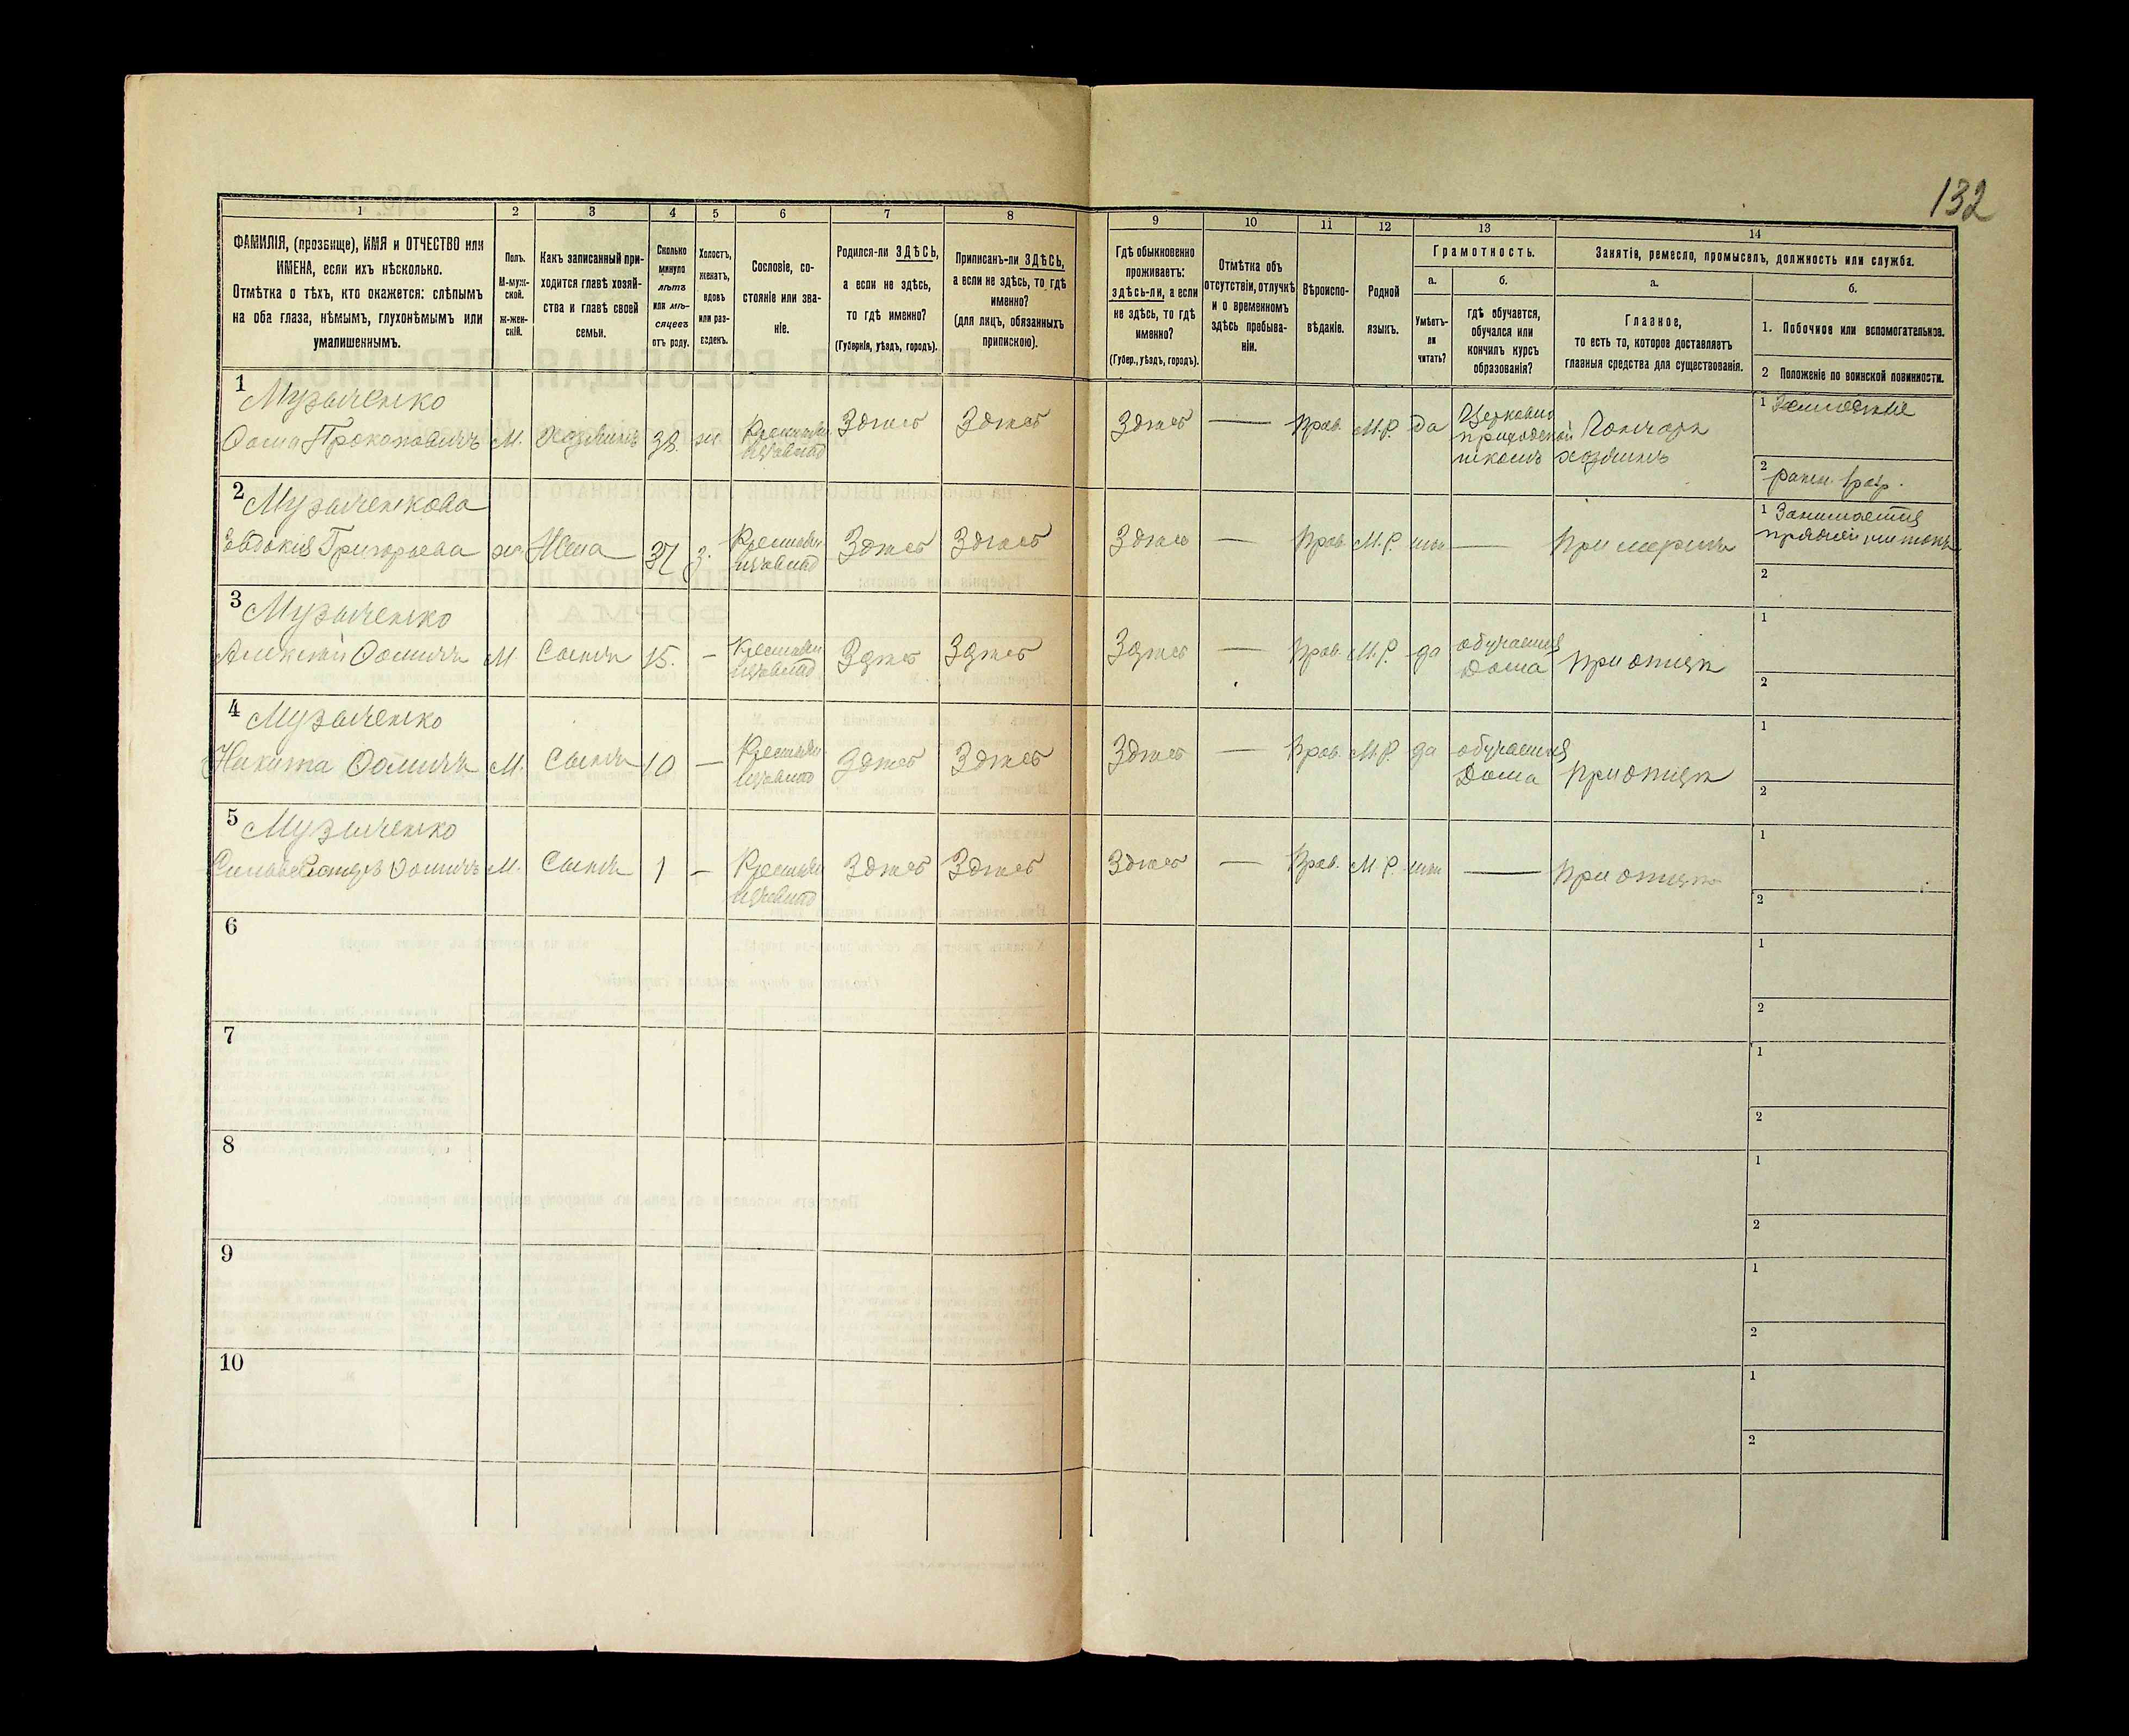 132
1
2
3
4
5
6
7
8
9
10
11
12
13
14
ФАМИЛІЯ, (прозвище), ИМЯ и ОТЧЕСТВО или
ИМЕНА, если ихъ нѣсколько.
Отмѣтка о тѣхъ, кто окажется: слѣпымъ
на оба глаза, нѣмымъ, глухонѣмымъ или
умалишеннымъ.
Полъ.
М-муж-
ской.
ж-жен-
скій.
Какъ записанный при-
ходится главѣ хозяй-
ства и главѣ своей
семьи.
Сколько
минуло
лѣтъ
или мѣ-
сяцевъ
отъ роду.
Холостъ,
женатъ,
вдовъ
или раз-
веденъ.
Сословіе, со-
стояніе или зва-
ніе.
Родился-ли ЗДѢСЬ,
а если не здѣсь,
то гдѣ именно?
(Губернія, уѣздъ, городъ).
Приписанъ-ли ЗДѢСЬ,
а если не здѣсь, то гдѣ
именно?
(для лицъ, обязанныхъ
припискою).
Гдѣ обыкновенно
проживаетъ:
здѣсь-ли, а если
не здѣсь, то гдѣ
именно?
(Губер., уѣздъ, городъ).
Отмѣтка объ
отсутствіи, отлучкѣ
и о временномъ
здѣсь пребыва-
ніи.
Вѣроиспо-
вѣданіе.
Родной
языкъ.
Грамотность.
а.
Умѣетъ-
ли
читать?
б.
гдѣ обучается,
обучался или
кончилъ курсъ
образованія?
Занятіе, ремесло, промыселъ, должность или служба.
а.
Главное,
то есть то, которое доставляетъ
главныя средства для существованія.
б.
1. Побочное или вспомогательное.
2 Положеніе по воинской повинности.
1 Музыченко
Ѳома Прокоповичъ М. Хозяинъ 38. ж Крестьян Здѣсь Здѣсь Здѣсь — Прав. М.Р. да
приходской Гончаръ
хозяинъ
1
2
2 Музыченкова
Евдокія Григорьева ж Жена 37 з. Крестьян Здѣсь Здѣсь Здѣсь — Прав. М.Р. нѣтъ — При мужѣ
1 Занимается
2
3 Музыченко
Алексѣй Ѳомичъ М Сынъ 15. — Крестьян Здѣсь Здѣсь Здѣсь — Прав. М.Р. да обучается
Дома При отцѣ
1
2
4 Музыченко
Никита Ѳомичъ М. Сынъ 10 — Крестьян Здѣсь Здѣсь Здѣсь — Прав. М.Р. да обучается
Дома При отцѣ
1
2
5 Музыченко
Ѳомичъ М. Сынъ 1 — Крестьян Здѣсь Здѣсь Здѣсь — Прав. М.Р. нѣтъ — При отцѣ
1
2
6
1
2
7
1
2
8
1
2
9
1
2
10
1
2